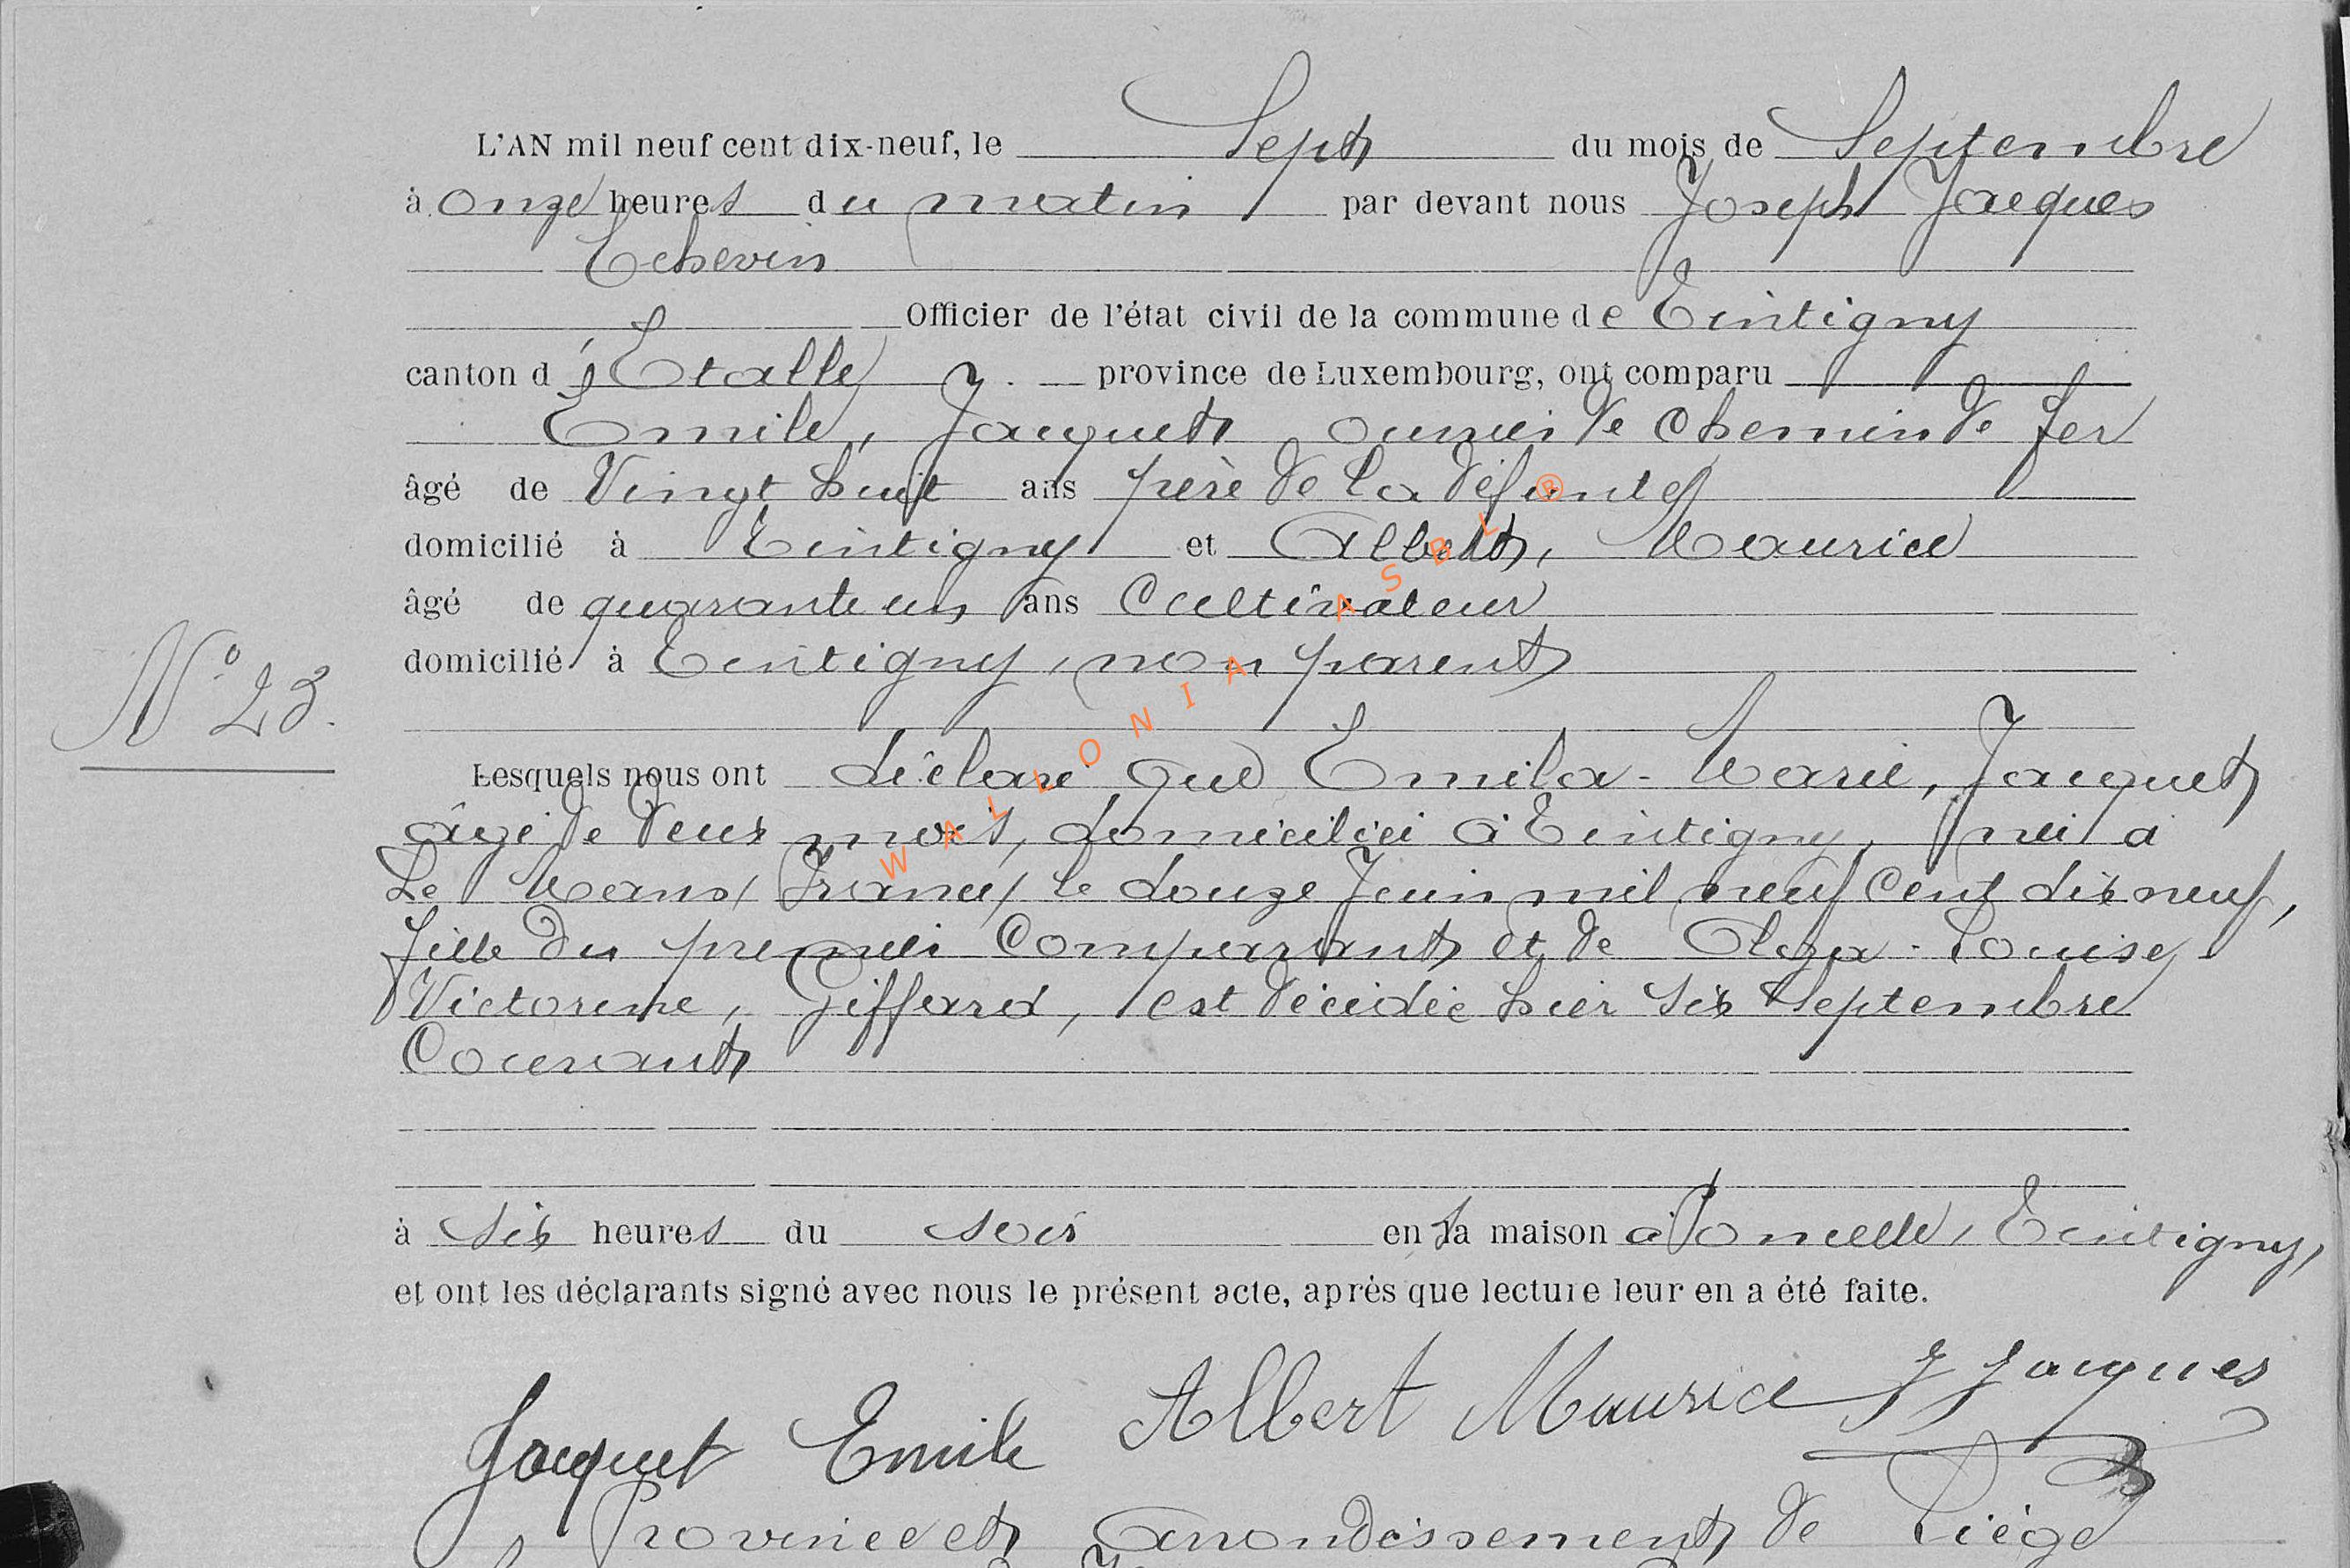 L'AN mil neuf cent dix-neuf, le Sept du mois de Septembre
à onze heures du matin par devant nous Joseph Jacques
Echevin
Officier de l'état civil de la commune de Tintigny
canton d'Etalle province de Luxembourg, ont comparu
Emile, Jacquet ouvrier de chemin de fer
âgé de Vingt huit ans père de la défunte
domicilié à Tintigny et Albert, Maurice
âgé de quarante un ans Cultivateur
domicilié à Tintigny, non parent
N° 23.
Lesquels nous ont déclaré que Emila-Marie, Jacquet
âgée de deux mois, domiciliée à Tintigny, née à
Le Mans / France / le douze Juin mil neuf cent dix neuf,
fille du premier Comparant et de Olga-Louise
Victorine, Giffard, est décédée hier six Septembre
Courant
à six heures du soir en sa maison à Poncelle, Tintigny,
et ont les déclarants signé avec nous le présent acte, après que lecture leur en a été faite.
Jacquet Emile Albert Maurice J Jacques
Province et Arrondissement de Liége
WALLONIA ASBL ®